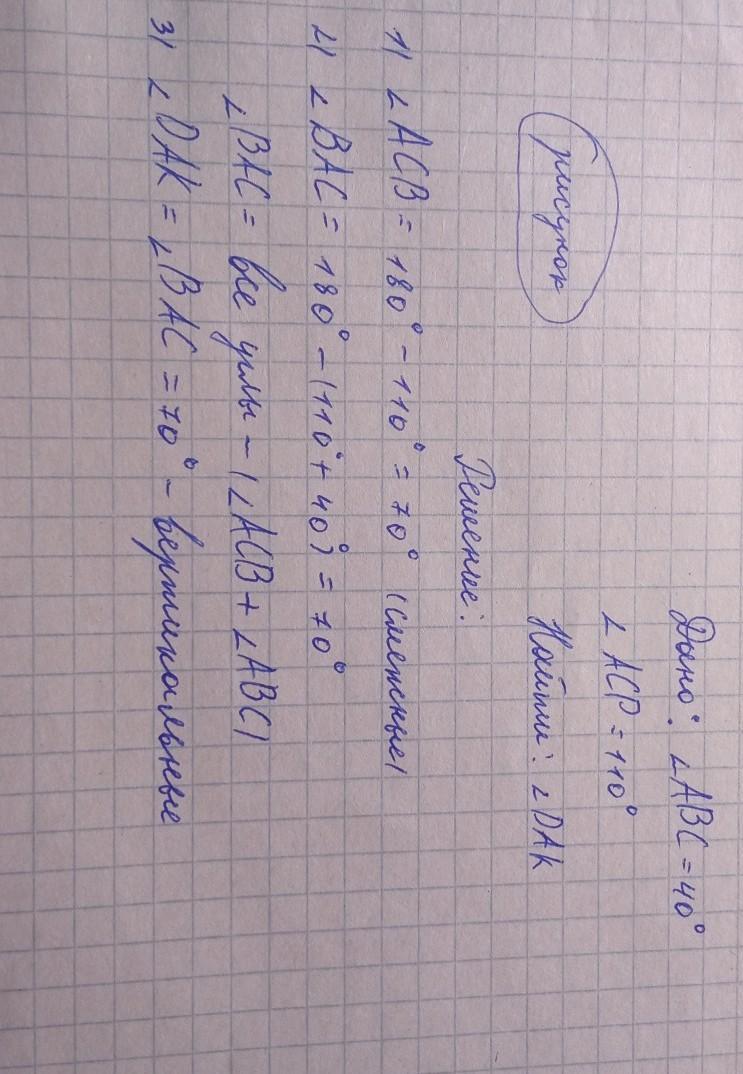 рисунок
Дано: ∠ABC = 40°
∠ACP = 110°
Найти: ∠DAK
Решение:
1) ∠ACB = 180° - 110° = 70° (смежные)
2) ∠BAC = 180° - (110° + 40°) = 70°
∠BAC = все углы - (∠ACB + ∠ABC)
3) ∠DAK = ∠BAC = 70° - вертикальные